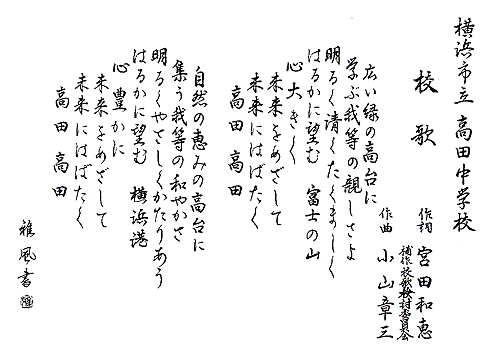 横浜市立 高田中学校
校歌
作詞 宮田和恵
補作 校歌検討委員会
作曲 小山章三
広い緑の高台に
学ぶ我等の親しさよ
明るく清くたくましく
はるかに望む 富士の山
心大きく
未来をめざして
未来にはばたく
高田 高田
自然の恵みの高台に
集う我等の和やかさ
明るくやさしくかたりあう
はるかに望む 横浜港
心豊かに
未来をめざして
未来にはばたく
高田 高田
雅風書